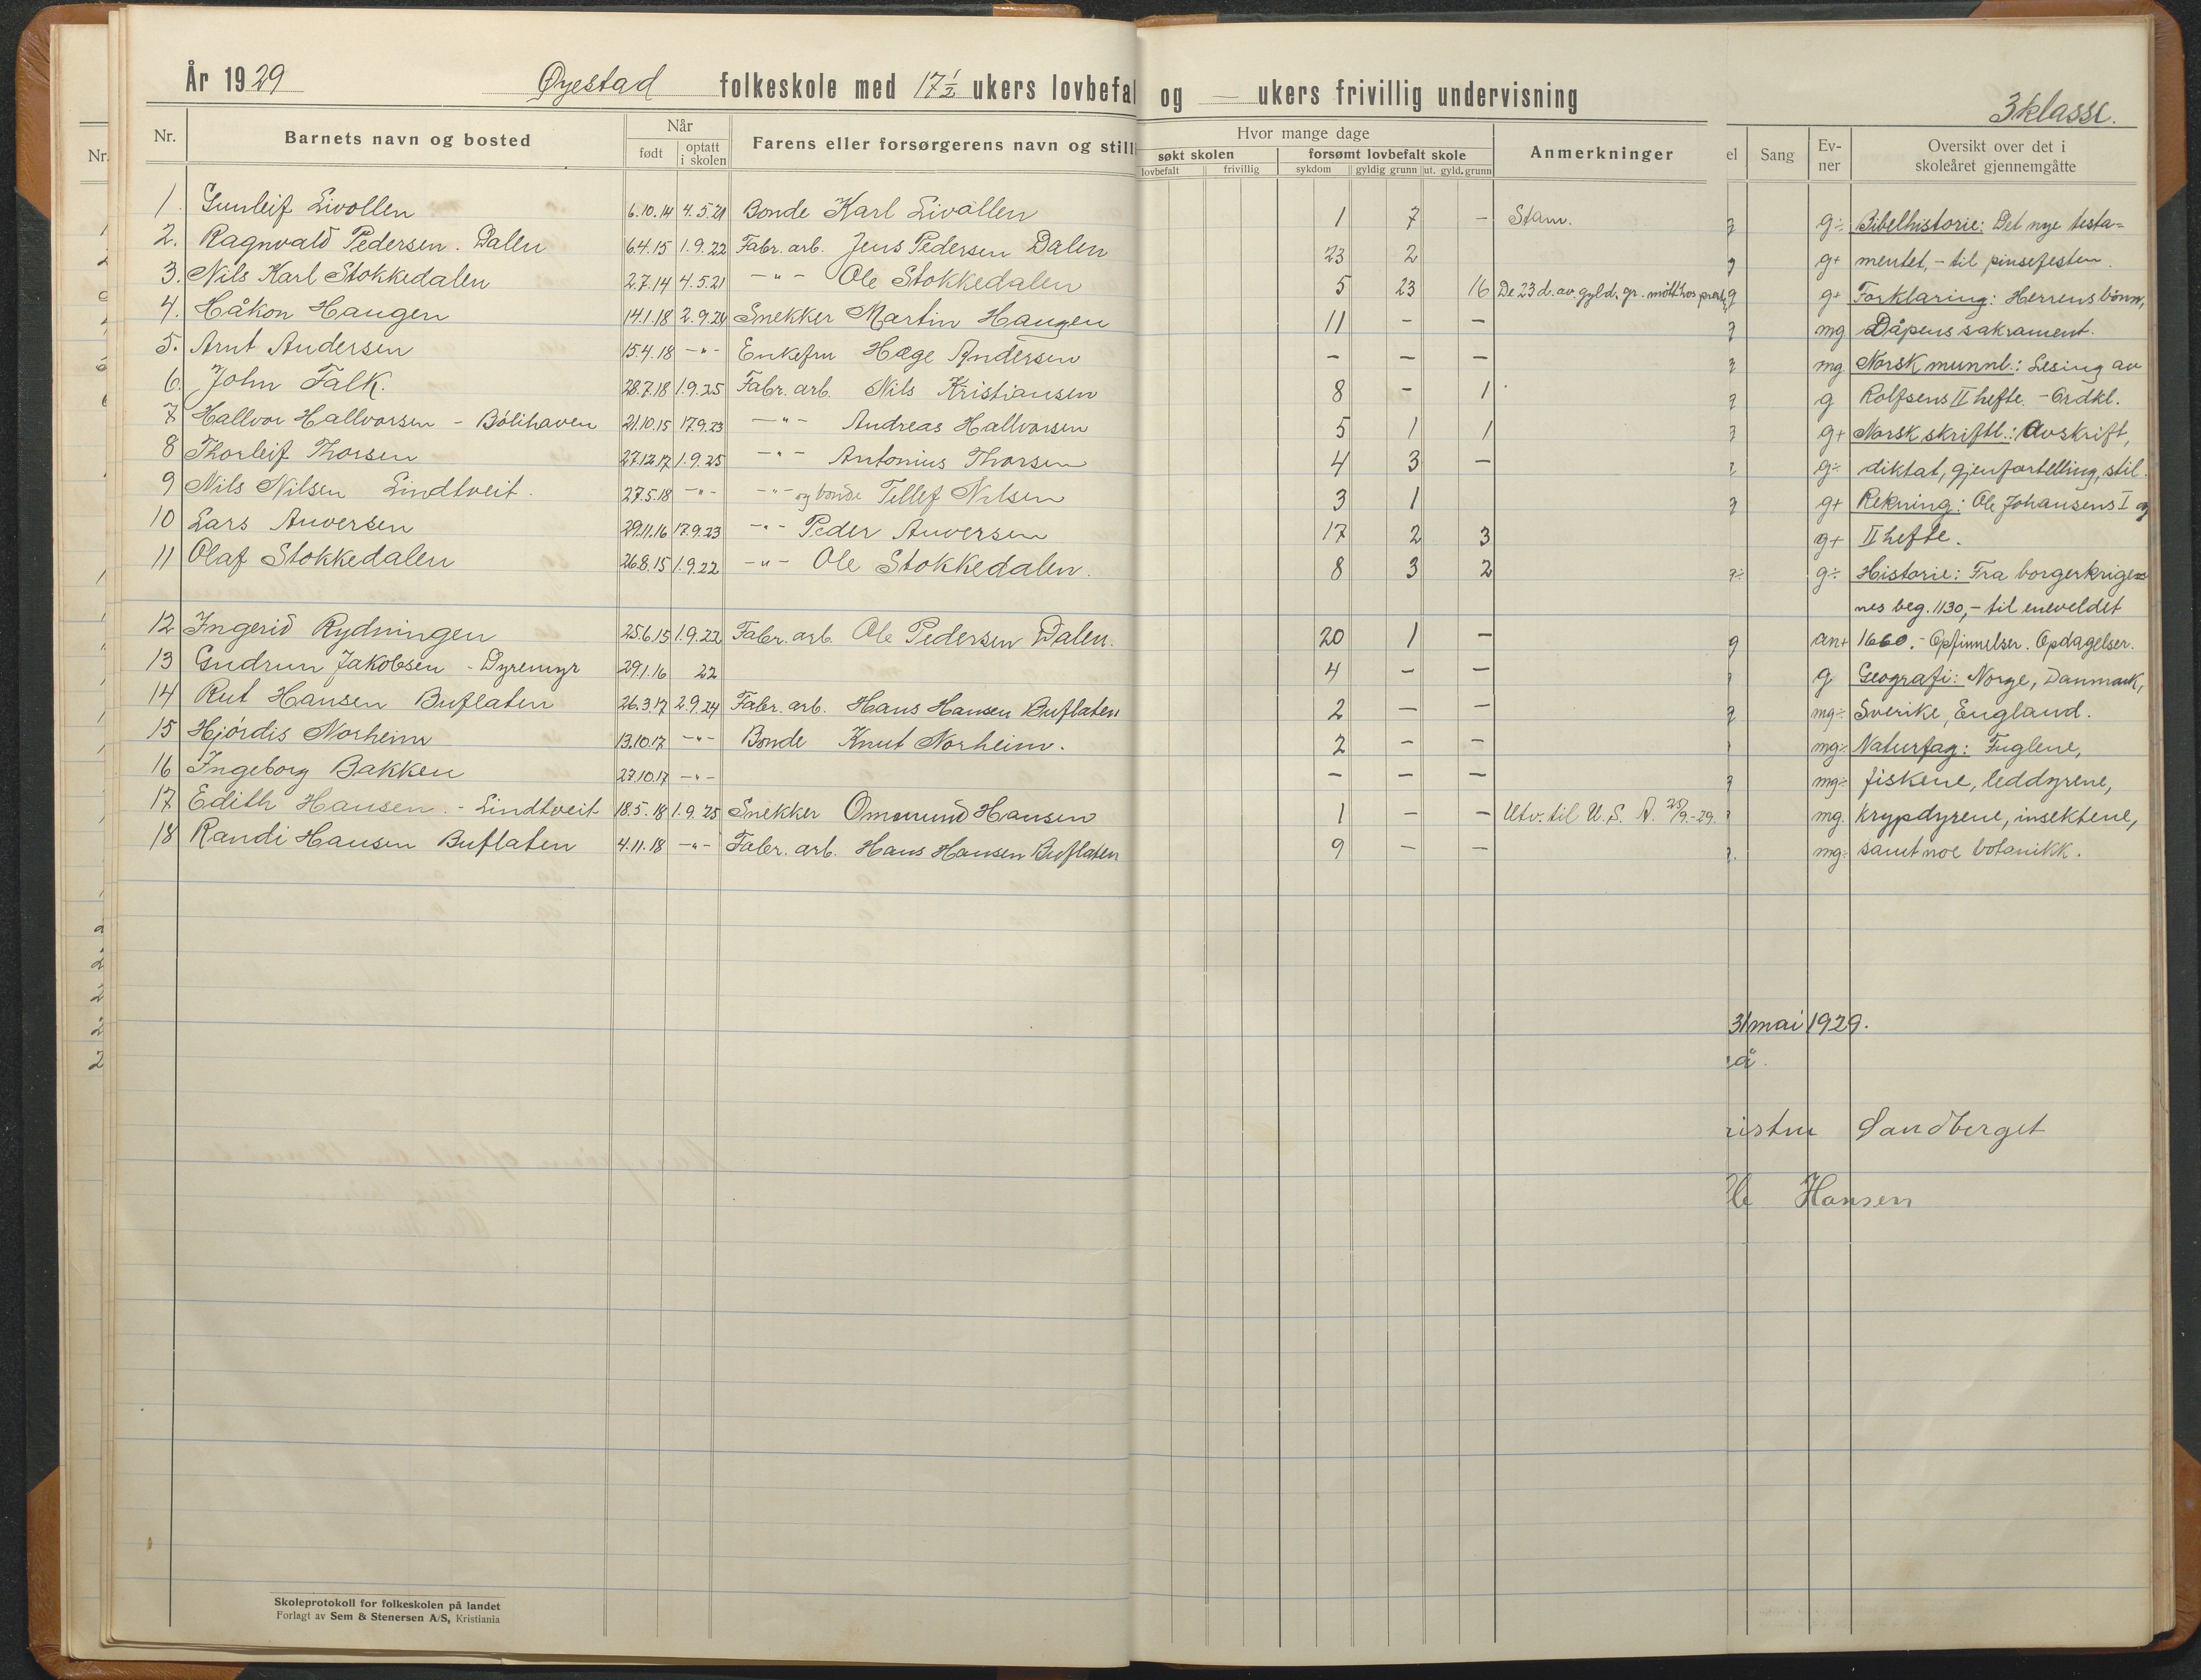 År 1929 Øyestad folkeskole med 17 1/2 ukers lovbefal og — ukers frivillig undervisning
3 klasse.
Nr. Barnets navn og bosted Når født optatt i skolen Farens eller forsørgerens navn og still Hvor mange dage søkt skolen lovbefalt frivillig forsømt lovbefalt skole sykdom gyldig grunn ut. gyld. grunn Anmerkninger el Sang Ev-ner Oversikt over det i skoleåret gjennemgåtte
1. Gunleif Livollen 6.10.14 4.5.21 Bonde Karl Livollen 1 7 – Stam. g÷ Bibelhistorie: Det nye testa=
2. Ragnvald Pedersen. Dalen 6.4.15 1.9.22 Fabr. arb. Jens Pedersen Dalen 23 2 g+ mentet, – til pinsefesten.
3. Nils Karl Stokkedalen 2.7.14 4.5.21 –"– Ole Stokkedalen 5 23 16 De 23 d. av. gyld. gr. mött hos g g+ Forklaring: Herrens bönn,
4. Håkon Haugen 14.1.18 2.9.24 Snekker Martin Haugen 11 – – mg Dåpens sakrament.
5. Arnt Andersen 15.4.18 –"– Enkefru Hæge Andersen – – – mg. Norsk munnl.: Lesing av
6. John Falk. 28.7.18 1.9.25 Fabr. arb. Nils Kristiansen 8 – 1 g Rolfsens II hefte. – Ordkl.
7 Hallvor Hallvorsen – Bölihaven 21.10.15 17.9.23 –"– Andreas Hallvorsen 5 1 1 g+ Norsk skriftl.: Avskrift,
8 Thorleif Thorsen 27.12.17 1.9.25 –"– Antonius Thorsen 4 3 – g÷ diktat, gjenfortelling, stil.
9 Nils Nilsen Lindtveit. 27.5.18 –"– –"– og bonde Tellef Nilsen 3 1 g+ Rekning: Ole Johansens I og
10 Lars Auversen 29.11.16 17.9.23 –"– Peder Auversen 17 2 3 g+ II hefte.
11 Olaf Stokkedalen 26.8.15 1.9.22 –"– Ole Stokkedalen. 8 3 2 g÷ Historie: Fra borgerkrige=
nes beg. 1130, – til eneveldet
12 Ingerid Rydningen 25.6.15 1.9.22 Fabr. arb. Ole Pedersen Dalen. 20 1 – g an+ 1660. – Opfinnelser. Opdagelser.
13 Gudrun Jakobsen – Dyremyr 29.1.16 22 4 – – g Geografi: Norge, Danmark,
14 Rut Hansen Buflaten 26.3.17 2.9.24 Fabr. arb. Hans Hansen Buflaten 2 – – mg÷ Sverike, England.
15 Hjördis Norheim 13.10.17 –"– Bonde Knut Norheim. 2 – – mg÷ Naturfag: Fuglene,
16 Ingeborg Bakken 27.10.17 –"– – – – mg÷ fiskene, leddyrene,
17 Edith Hansen. – Lindtveit 18.5.18 1.9.25 Snekker Omund Hansen 1 – – Utv. til U.S.A. 25/9.–29. mg. krypdyrene, insektene,
18 Randi Hansen Buflaten 4.11.18 –"– Fabr. arb. Hans Hansen Buflaten 9 – – mg÷ samt noe botanikk.
31 mai 1929.
Sandberget
Hansen
Skoleprotokoll for folkeskolen på landet
Forlagt av Sem & Stenersen A/S, Kristiania